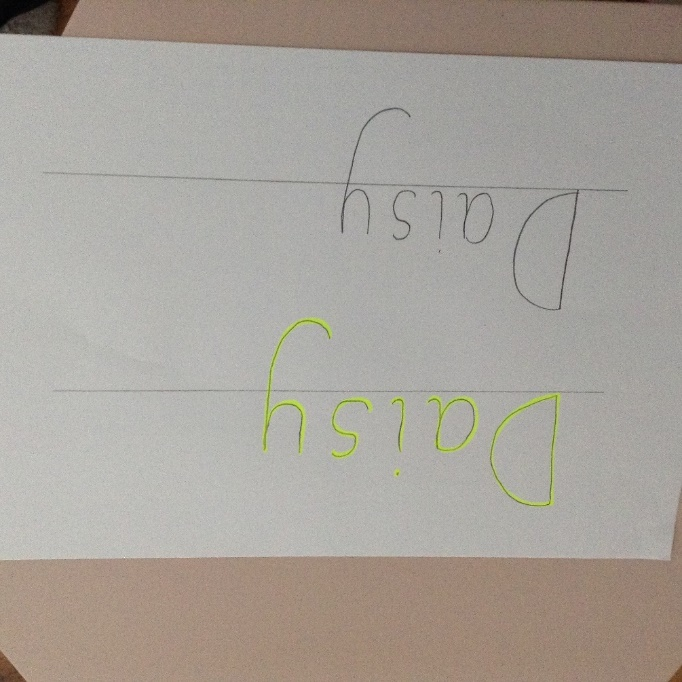 Daisy
Daisy